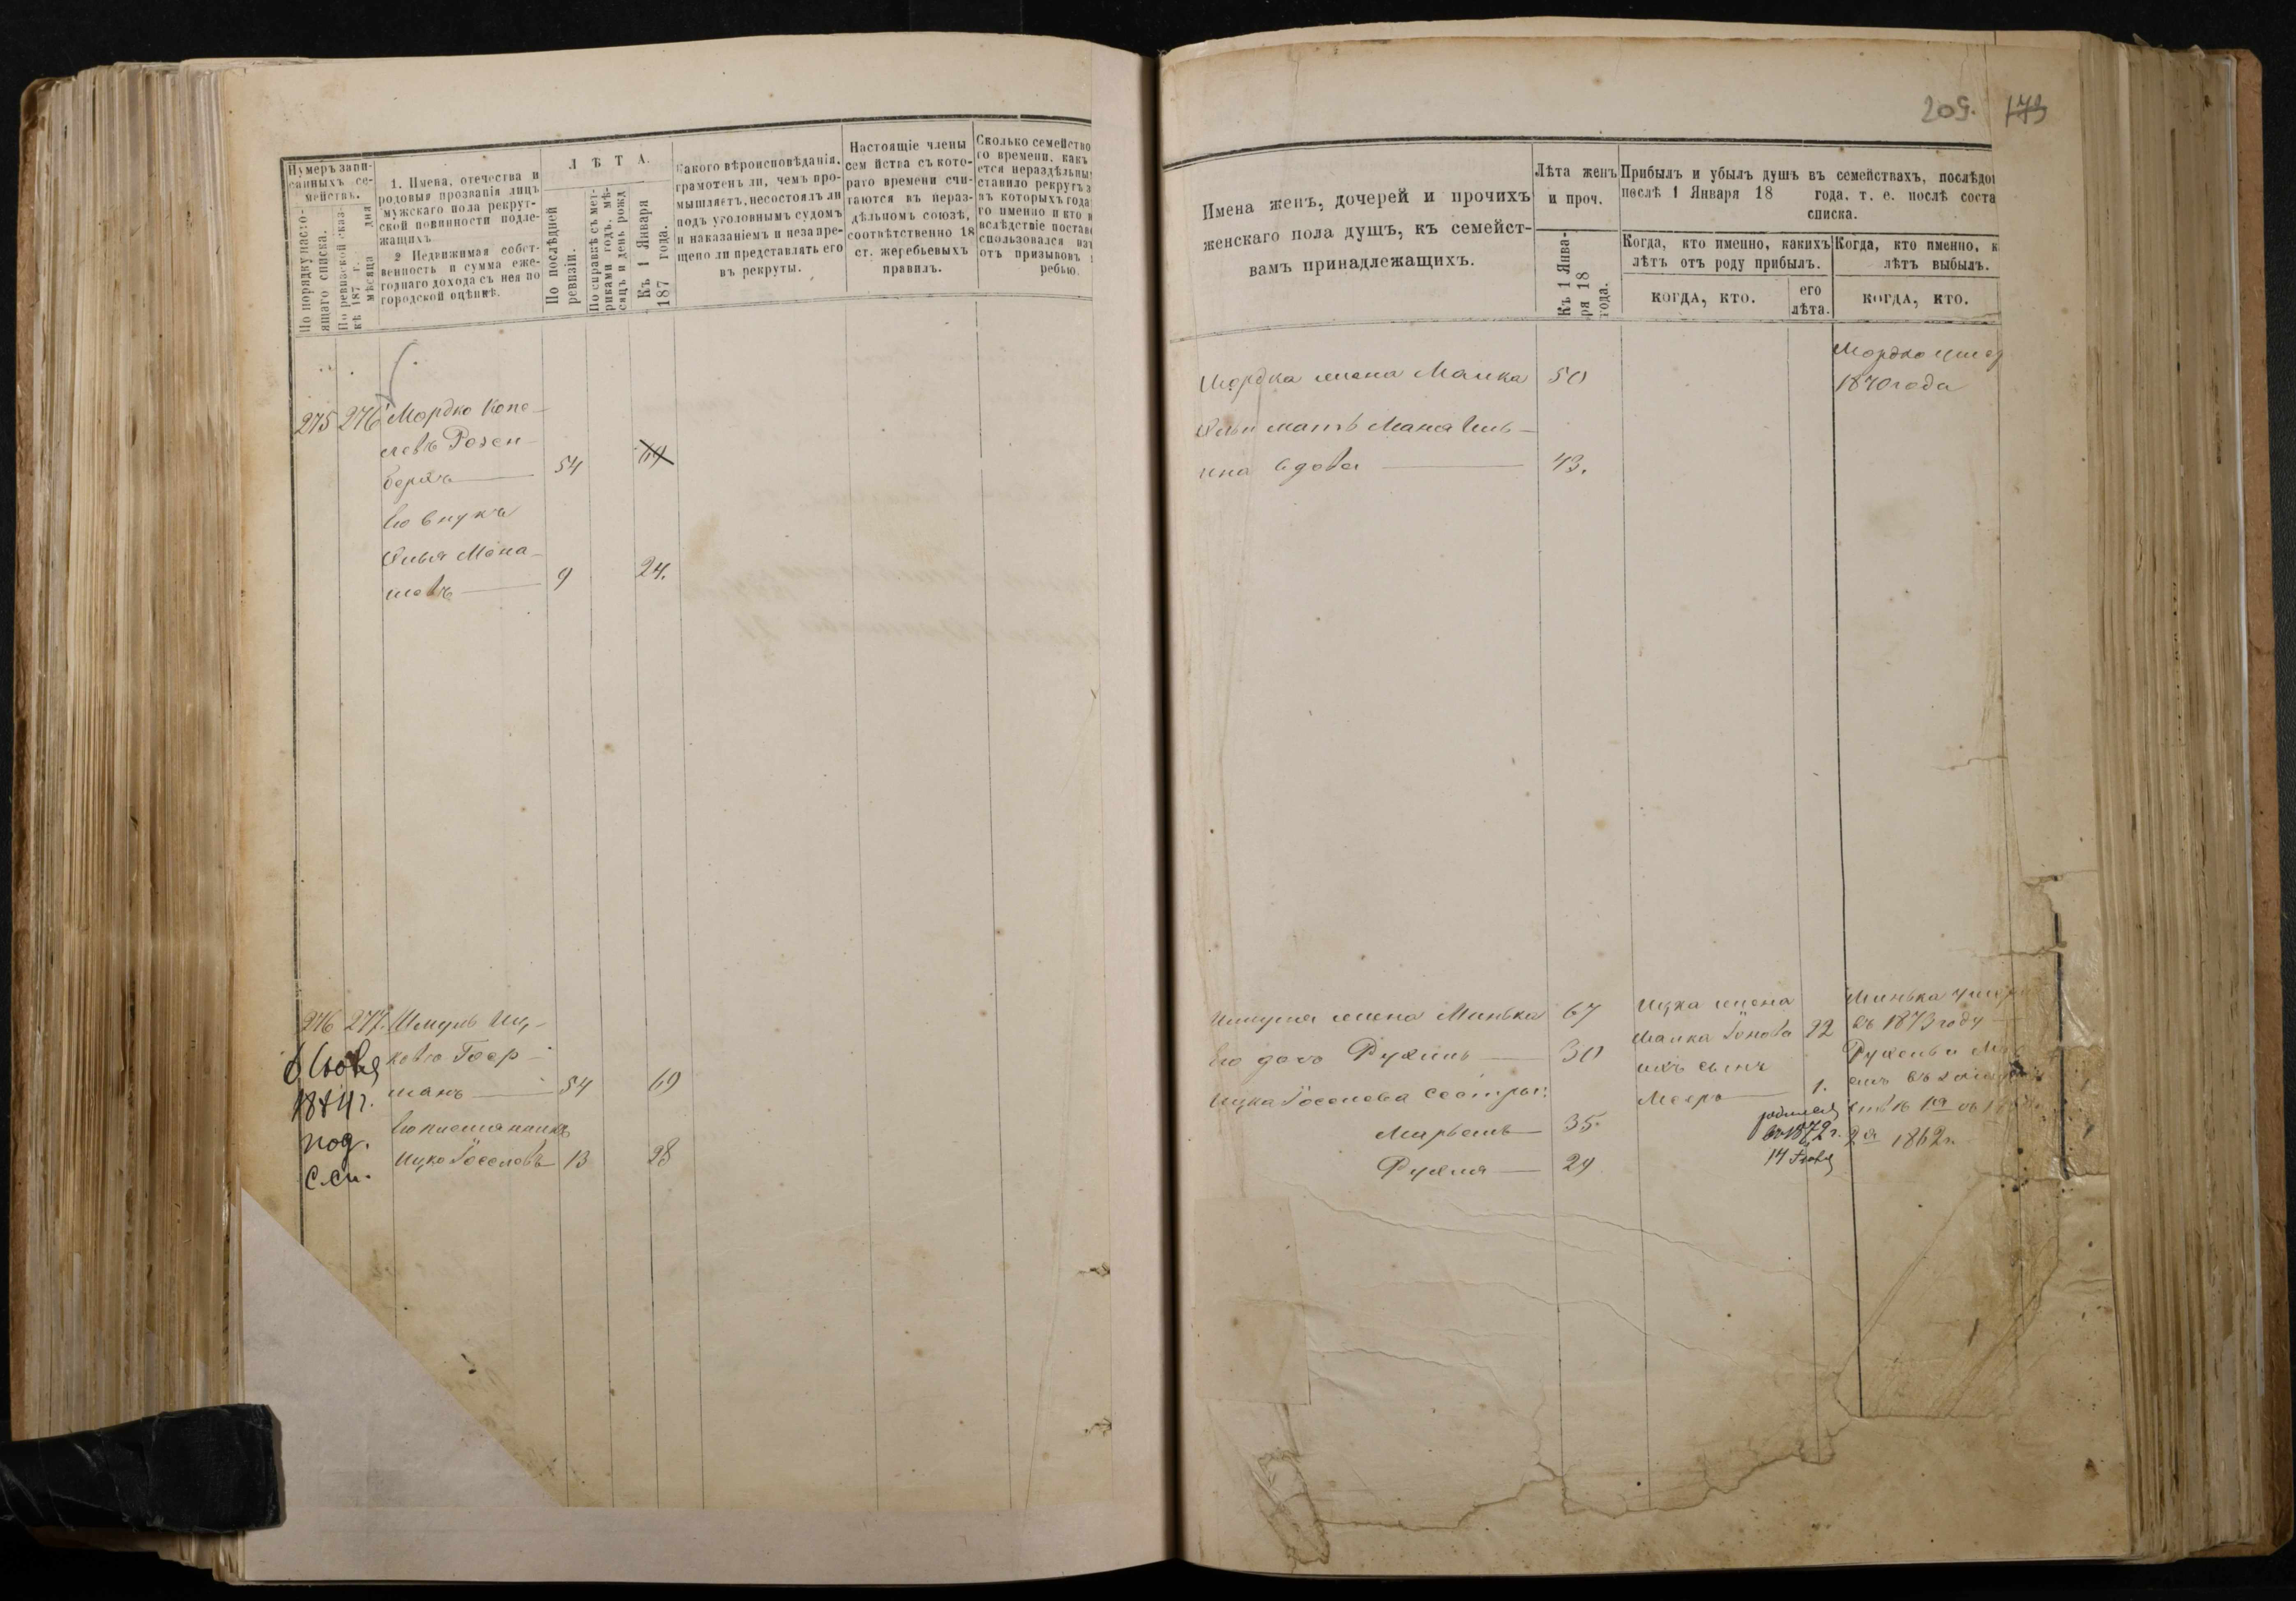 Нумеръ запи-
санныхъ се-
мействъ.
По порядку насто-
ящаго списка.
По ревизской сказ-
кѣ 187 г. дня
мѣсяца
1. Имена, отечества и
родовыя прозванія лицъ
мужскаго пола рекрут-
ской повинности подле-
жащихъ
2 Недвижимая собст-
венность и сумма еже-
годнаго дохода съ нея по
городской оцѣнкѣ.
Л Ѣ Т А.
По послѣдней
ревизіи.
По справкѣ съ мет-
риками годъ, мѣ-
сяцъ и день рожд
Къ 1 Января
187 года.
Какого вѣроисповѣданія,
грамотенъ ли, чемъ про-
мышляетъ, несостоялъ ли
подъ уголовнымъ судомъ
и наказаніемъ и незапре-
щено ли представлять его
въ рекруты.
Настоящіе члены
сем йства съ кото-
раго времени счи-
таются въ нераз-
дѣльномъ союзѣ,
соотвѣтственно 18
ст. жеребьевыхъ
правилъ.
Сколько семейство
го времени, какъ
ется нераздѣльны
ставило рекрутъ з
въ которыхъ года
го именно и кто в
вслѣдствіе постав
спользовался из
отъ призывовъ
ребью.
275 276 Мордко Копе-
левъ Розен-
берхъ 54 69
Его внукъ
Эилья Мона-
шовъ 9 24.
276 277. Шмуль Иц-
ковъ Гоер-
манъ 54 69
Его племянникъ
Ицко Іоселовъ 13 28
1874 г.
под.
с.сп.
209. 173
Имена женъ, дочерей и прочихъ
женскаго пола душъ, къ семейст-
вамъ принадлежащихъ.
Лѣта женъ
и проч.
Къ 1 Янва-
ря 18
года.
Прибылъ и убылъ душъ въ семействахъ, послѣдо
послѣ 1 Января 18 года, т. е. послѣ соста
списка.
Когда, кто именно, какихъ
лѣтъ отъ роду прибылъ.
Когда, кто именно, к
лѣтъ выбылъ.
КОГДА, КТО.
его
лѣта.
КОГДА, КТО.
Мордка жена Малка 50
Мордко умер
1870 года
мать Маня Иль-
ина вдова 43.
Шмуля жена Минька 67
Его дочь Рухинь 30
Ицка Іоселова сестры:
Мирьямъ 35
Рухля 24
Ицка жена
Малка Іонова 22
ихъ сынъ
Мееръ 1.
родился
въ 1872 г.
14
Минька умер
въ 1873 году
1862 г.